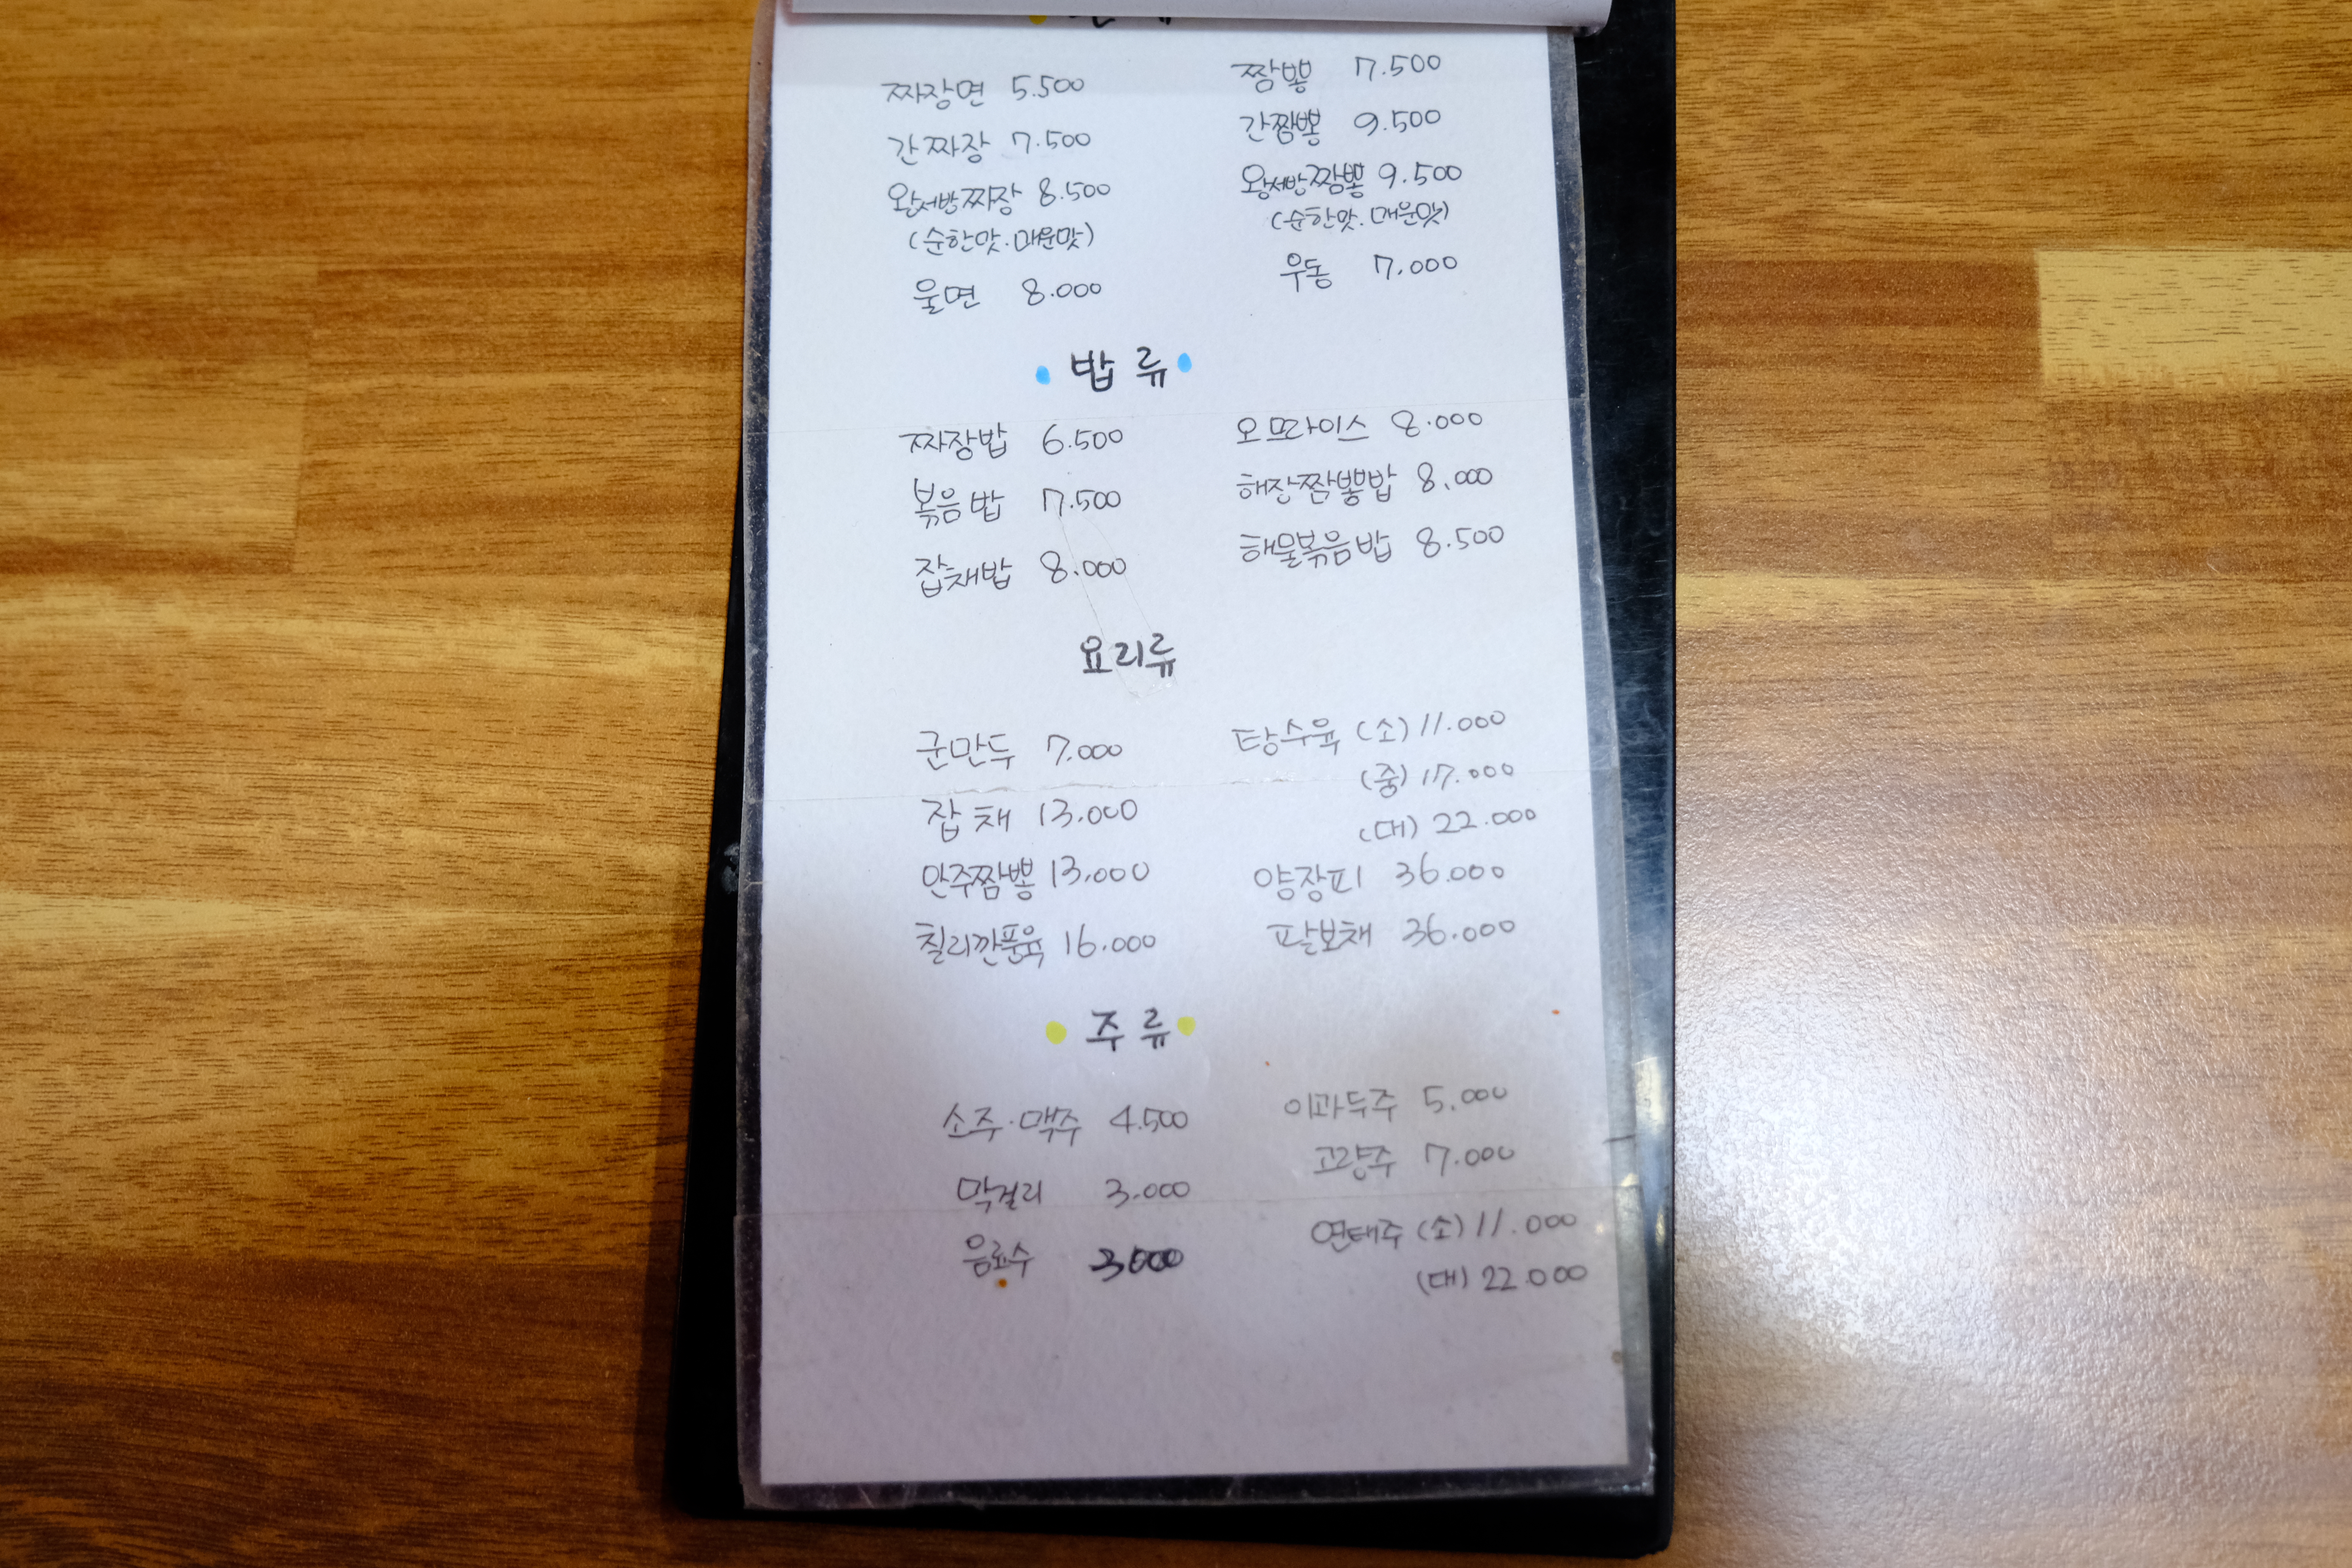 짜장면 5.500
짬뽕 7.500
간짜장 7.500
간짬뽕 9.500
왕서방짜장 8.500
(순한맛.매운맛)
왕서방짬뽕 9.500
(순한맛.매운맛)
울면 8.000
우동 7.000
밥류
짜장밥 6.500
오므라이스 8.000
볶음밥 7.500
해장짬뽕밥 8.000
잡채밥 8.000
해물볶음밥 8.500
요리류
군만두 7.000
탕수육 (소) 11.000
(중) 17.000
(대) 22.000
잡채 13.000
안주짬뽕 13.000
양장피 36.000
칠리깐풍육 16.000
팔보채 36.000
주류
소주·맥주 4.500
이과두주 5.000
막걸리 3.000
고량주 7.000
음료수 3000
연태주 (소) 11.000
(대) 22.000